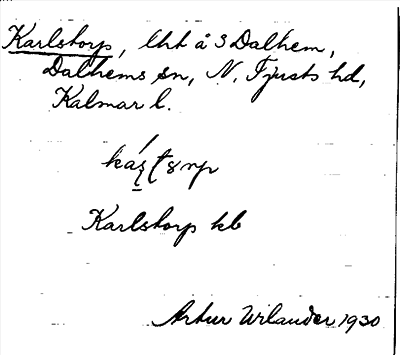 Karlstorp, lht å 3 Dalhem,
Dalhems sn, N. Tjusts hd,
Kalmar l.
Karlstorp kb
Artur Wilander 1930